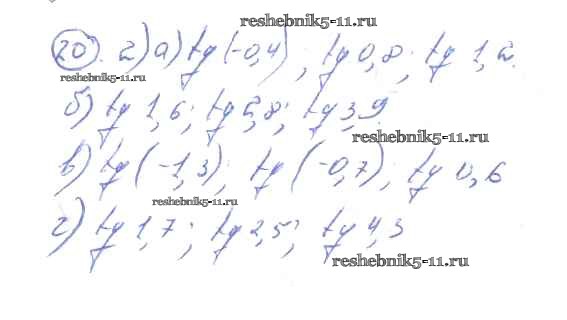 reshebnik5-11.ru
20. 2) а) tg(-0,4); tg 0,8; tg 1,2.
reshebnik5-11.ru
б) tg 1,6; tg 5,8; tg 3,9.
reshebnik5-11.ru
в) tg(-1,3); tg(-0,7); tg 0,6
reshebnik5-11.ru
г) tg 1,7; tg 2,5; tg 4,3
reshebnik5-11.ru